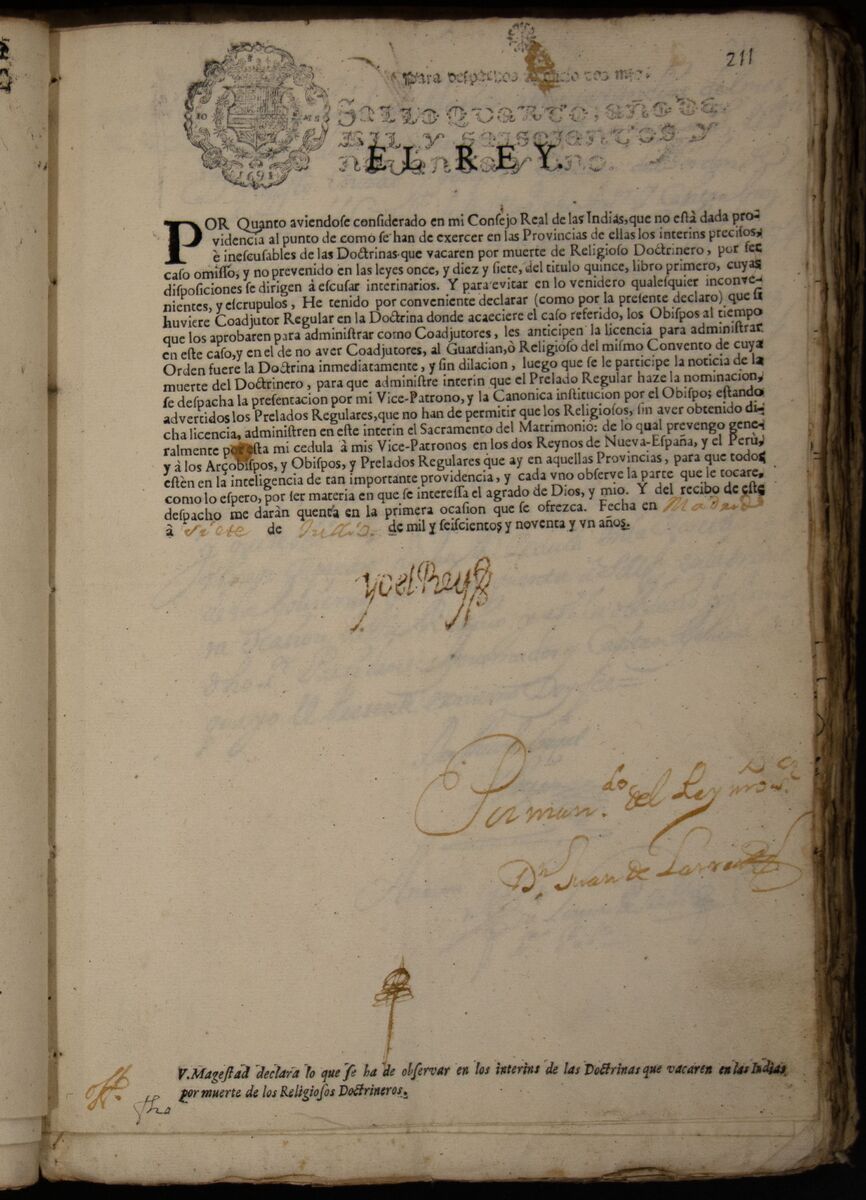 211
para despachos de oficio dos mrs.
SELLO QVARTO, AÑO DE
MIL Y SEISCIENTOS Y
NOVENTA Y VNO.
1691
EL REY.
POR Quanto aviendose considerado en mi Consejo Real de las Indias, que no està dada pro-
videncia al punto de como se han de exercer en las Provincias de ellas los interins precisos,
è inescusables de las Doctrinas que vacaren por muerte de Religioso Doctrinero, por ser
caso omisso, y no prevenido en las leyes once, y diez y siete, del titulo quince, libro primero, cuyas
disposiciones se dirigen à escusar interinarios. Y para evitar en lo venidero qualesquier inconve-
nientes, y escrupulos, He tenido por conveniente declarar (como por la presente declaro) que si
huviere Coadjutor Regular en la Doctrina donde acaeciere el caso referido, los Obispos al tiempo
que los aprobaren para administrar como Coadjutores, les anticipen la licencia para administrar
en este caso, y en el de no aver Coadjutores, al Guardian, ò Religioso del mismo Convento de cuya
Orden fuere la Doctrina inmediatamente, y sin dilacion, luego que se le participe la noticia de la
muerte del Doctrinero, para que administre interin que el Prelado Regular haze la nominacion,
se despacha la presentacion por mi Vice-Patrono, y la Canonica institucion por el Obispo; estando
advertidos los Prelados Regulares, que no han de permitir que los Religiosos, sin aver obtenido di-
cha licencia, administren en este interin el Sacramento del Matrimonio: de lo qual prevengo gene-
ralmente por esta mi cedula à mis Vice-Patronos en los dos Reynos de Nueva-España, y el Perù,
y à los Arçobispos, y Obispos, y Prelados Regulares que ay en aquellas Provincias, para que todos
estèn en la inteligencia de tan importante providencia, y cada vno observe la parte que le tocare,
como lo espero, por ser materia en que se interessa el agrado de Dios, y mio. Y del recibo de este
despacho me daràn quenta en la primera ocasion que se ofrezca. Fecha en Madrid
à siete de Jullio de mil y seiscientos y noventa y vn años.
yo el Rey
Por man.do del Rey nro s.r
Dn Juan de Larrea
V. Magestad declara lo que se ha de observar en los interins de las Doctrinas que vacaren en las Indias
por muerte de los Religiosos Doctrineros.